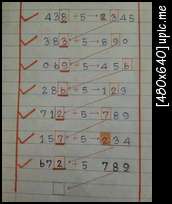 ✓ 438 - 5 → 2345
✓ 383 - 5 → 890
✓ 069 - 5 → 456
✓ 286 - 5 → 129
✓ 712 - 5 → 789
✓ 157 - 5 → 234
672 - 5 789
[480x640] upic.me